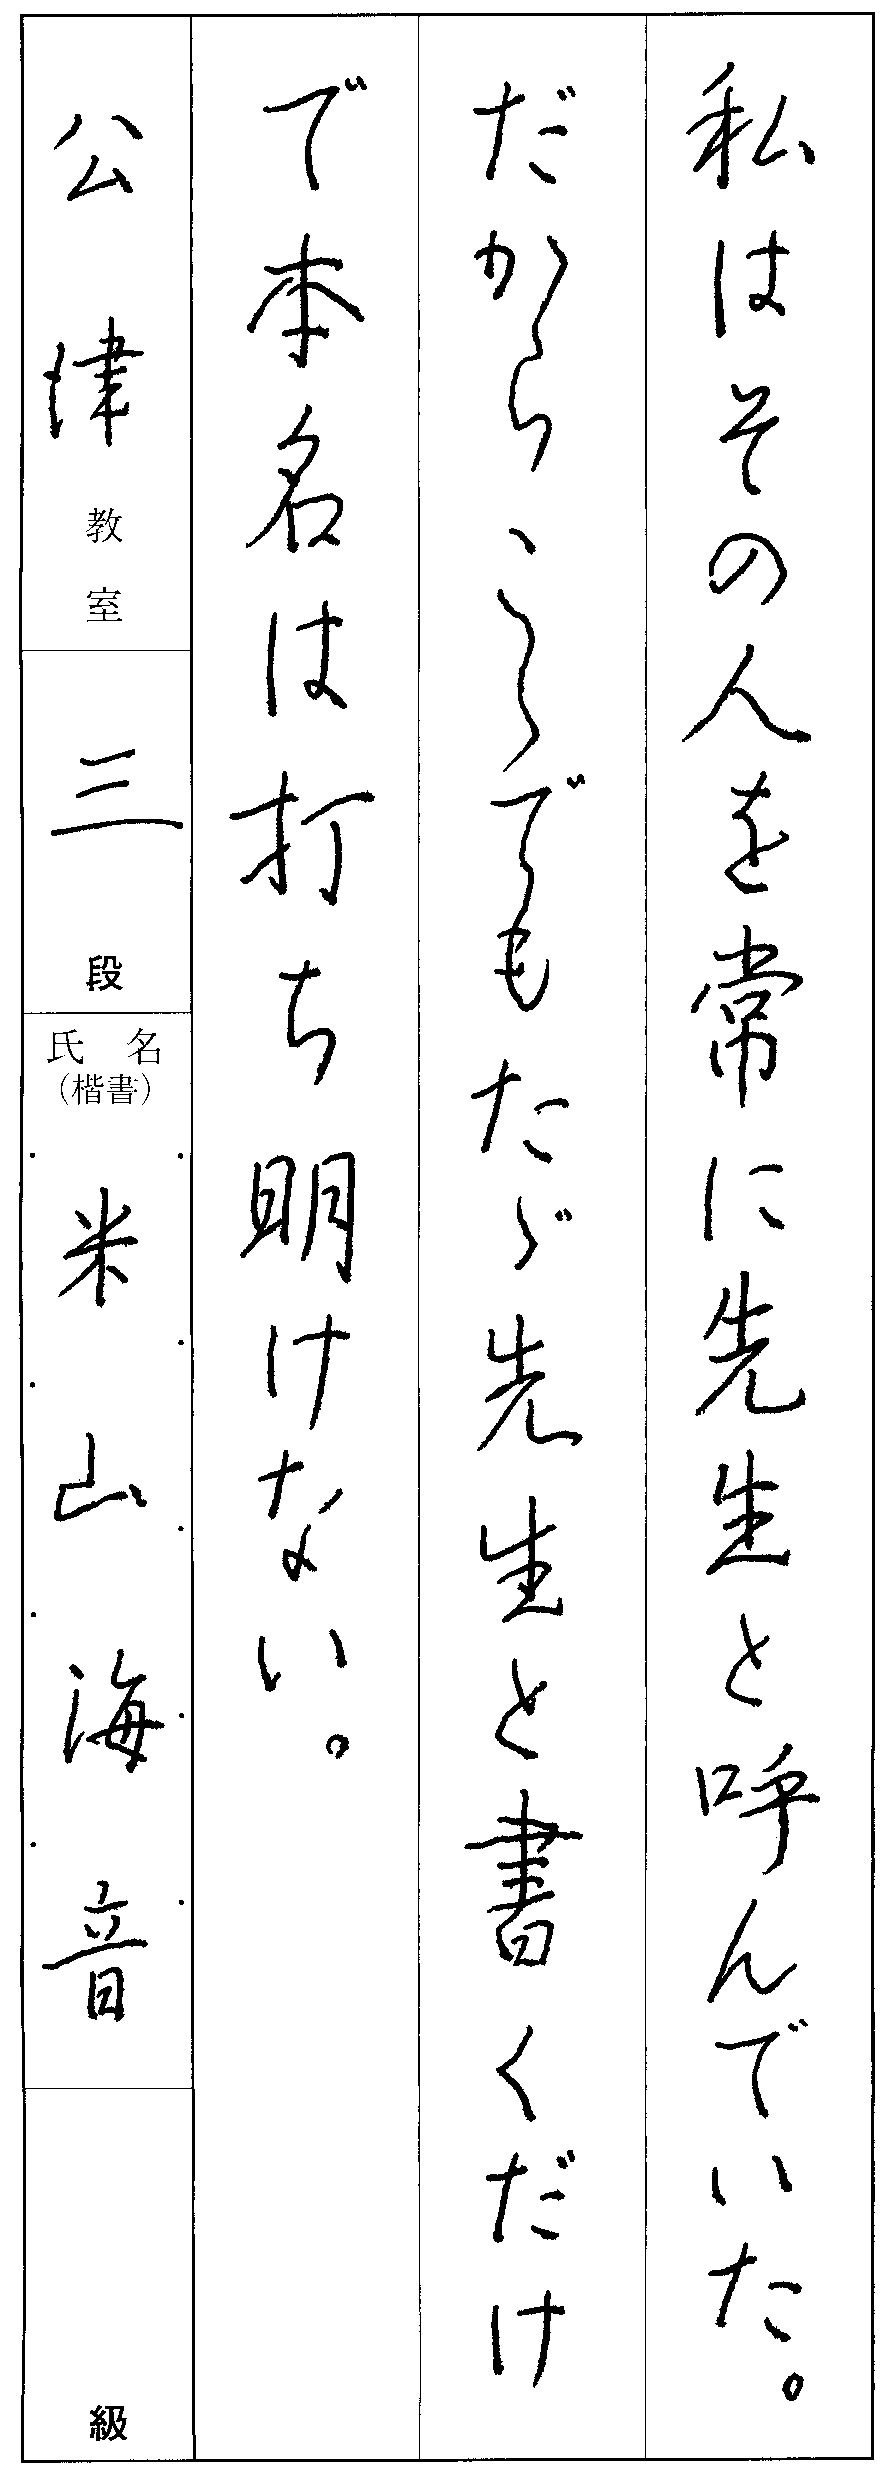 私はその人を常に先生と呼んでいた。
だからこゝでもたゞ先生と書くだけ
で本名は打ち明けない。
公津教室
三段
氏名
(楷書)
米山海音
級